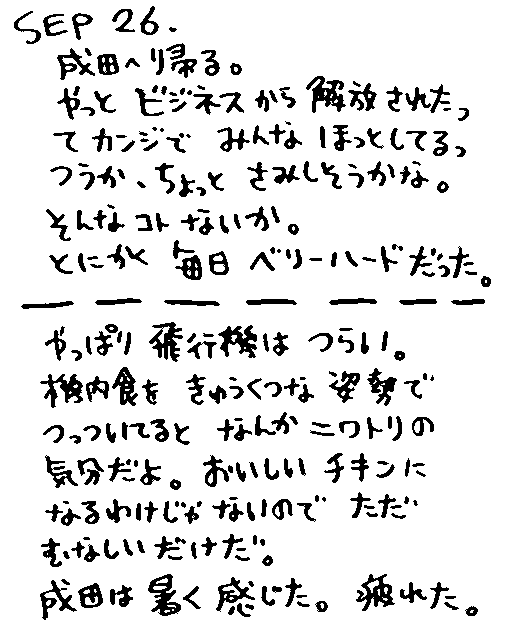 SEP 26.
成田へ帰る。
やっと ビジネスから 解放されたっ
て カンジで みんな ほっとしてるっ
つうか、ちょっと さみしそうかな。
そんな コト ないか。
とにかく 毎日 ベリーハードだった。
やっぱり 飛行機は つらい。
機内食を きゅうくつな 姿勢で
つっついてると なんか ニワトリの
気分だよ。おいしい チキンに
なるわけじゃ ないので ただ
むなしいだけだ。
成田は 暑く 感じた。疲れた。